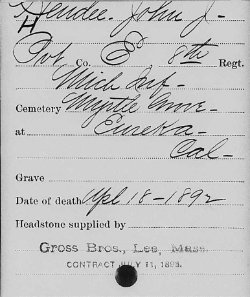 Hendee. John J-
Pvt. Co. B 8th Regt.
Mich Inf-
Cemetery Myrtle Grove-
at Eureka-
Cal-
Grave
Date of death Apl 18-1892
Headstone supplied by
Gross Bros., Lee, Mass.
CONTRACT JULY 11, 1893.